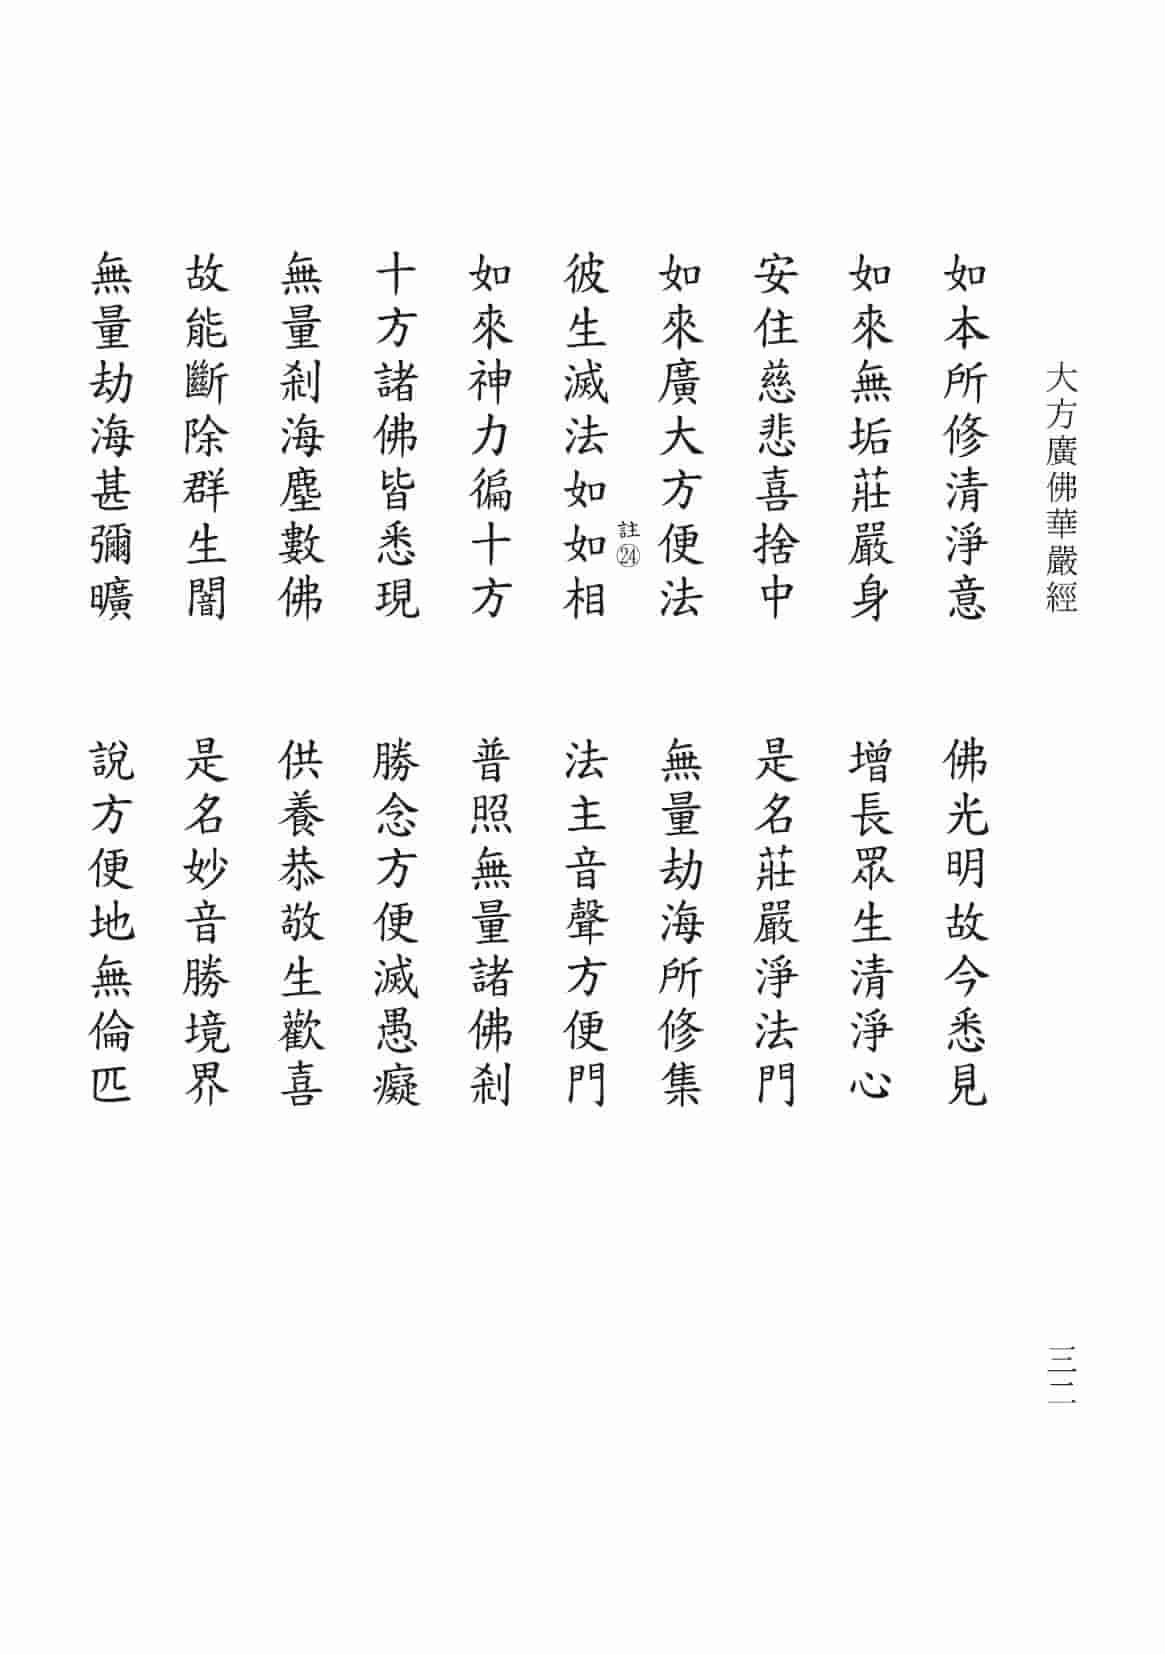 大方廣佛華嚴經
三二
如本所修清淨意　佛光明故今悉見
如來無垢莊嚴身　增長眾生清淨心
安住慈悲喜捨中　是名莊嚴淨法門
如來廣大方便法　無量劫海所修集
註㉔
彼生滅法如如相　法主音聲方便門
如來神力徧十方　普照無量諸佛剎
十方諸佛皆悉現　勝念方便滅愚癡
無量剎海塵數佛　供養恭敬生歡喜
故能斷除群生闇　是名妙音勝境界
無量劫海甚彌曠　說方便地無倫匹